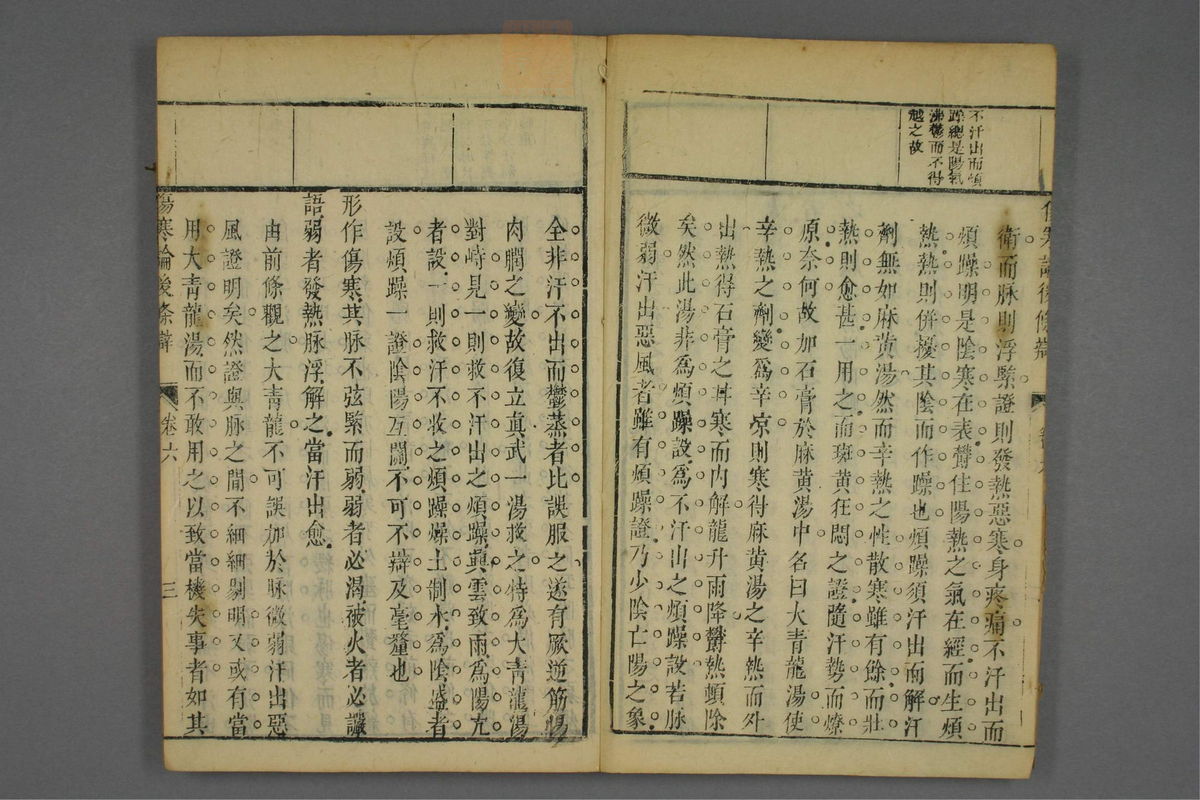 不汗出而煩
躁總是陽氣
沸鬱而不得
越之故
衛而脉則浮緊證則發熱惡寒身疼痛不汗出而
煩躁明是陰寒在表鬱住陽熱之氣在經而生煩
熱熱則併擾其陰而作躁也煩躁須汗出而解汗
劑無如麻黃湯然而辛熱之性散寒雖有餘而壯
熱則愈甚一用之而斑黃狂悶之證隨汗勢而燎
原奈何故加石膏於麻黃湯中名曰大青龍湯使
辛熱之劑變爲辛凉則寒得麻黃湯之辛熱而外
出熱得石膏之甘寒而内解龍升雨降鬱熱頓除
矣然此湯非爲煩躁設爲不汗出之煩躁設若脉
微弱汗出惡風者雖有煩躁證乃少陰亡陽之象
全非汗不出而鬱蒸者比誤服之遂有厥逆筋惕
肉瞤之變故復立真武一湯救之特爲大青龍湯
對峙見一則救不汗出之煩躁興雲致雨爲陽亢
者設一則救汗不收之煩躁燥土制水爲陰盛者
設煩躁一證陰陽互關不可不辯及毫釐也
形作傷寒其脉不弦緊而弱弱者必渴被火者必讝
語弱者發熱脉浮解之當汗出愈
由前條觀之大青龍不可誤加於脉微弱汗出惡
風證明矣然證與脉之間不細細剔明又或有當
用大青龍湯而不敢用之以致當機失事者如其
傷寒論後條辯
卷六
三